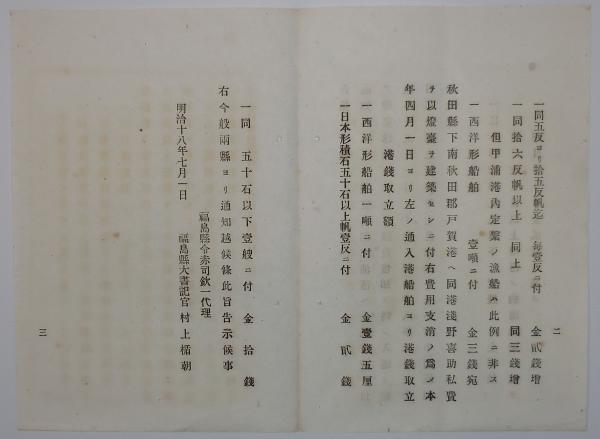 二
一同五反ヨリ拾五反帆迄 每壹反ニ付 金貳錢增
一同拾六反帆以上 同上 同三錢增
但甲浦港內定繫ノ漁船ハ此例ニ非ス
一西洋形船舶 壹噸ニ付 金三錢宛
秋田縣下南秋田郡戸賀港ヘ同港淺野喜助私費
ヲ以燈臺ヲ建築セシニ付右費用支消ノ爲メ本
年四月一日ヨリ左ノ通入港船舶ヨリ港錢取立
港錢取立額
一西洋形船舶一噸ニ付 金壹錢五厘
一日本形積石五十石以上帆壹反ニ付 金貳錢
一同 五十石以下壹艘ニ付 金拾錢
右今般兩縣ヨリ通知越候條此旨告示候事
福島縣令赤司欽一代理
明治十八年七月一日 福島縣大書記官 村上楯朝
三